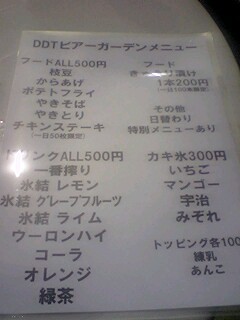 DDTビアーガーデンメニュー
フードALL500円
枝豆
からあげ
ポテトフライ
やきそば
やきとり
チキンステーキ
(一日50枚限定)
フード
1本200円
(一日100本限定)
その他
日替わり
特別メニューあり
ALL500円
一番搾り
氷結 レモン
氷結 グレープフルーツ
氷結 ライム
ウーロンハイ
コーラ
オレンジ
緑茶
カキ氷300円
いちご
マンゴー
宇治
みぞれ
トッピング各100
練乳
あんこ